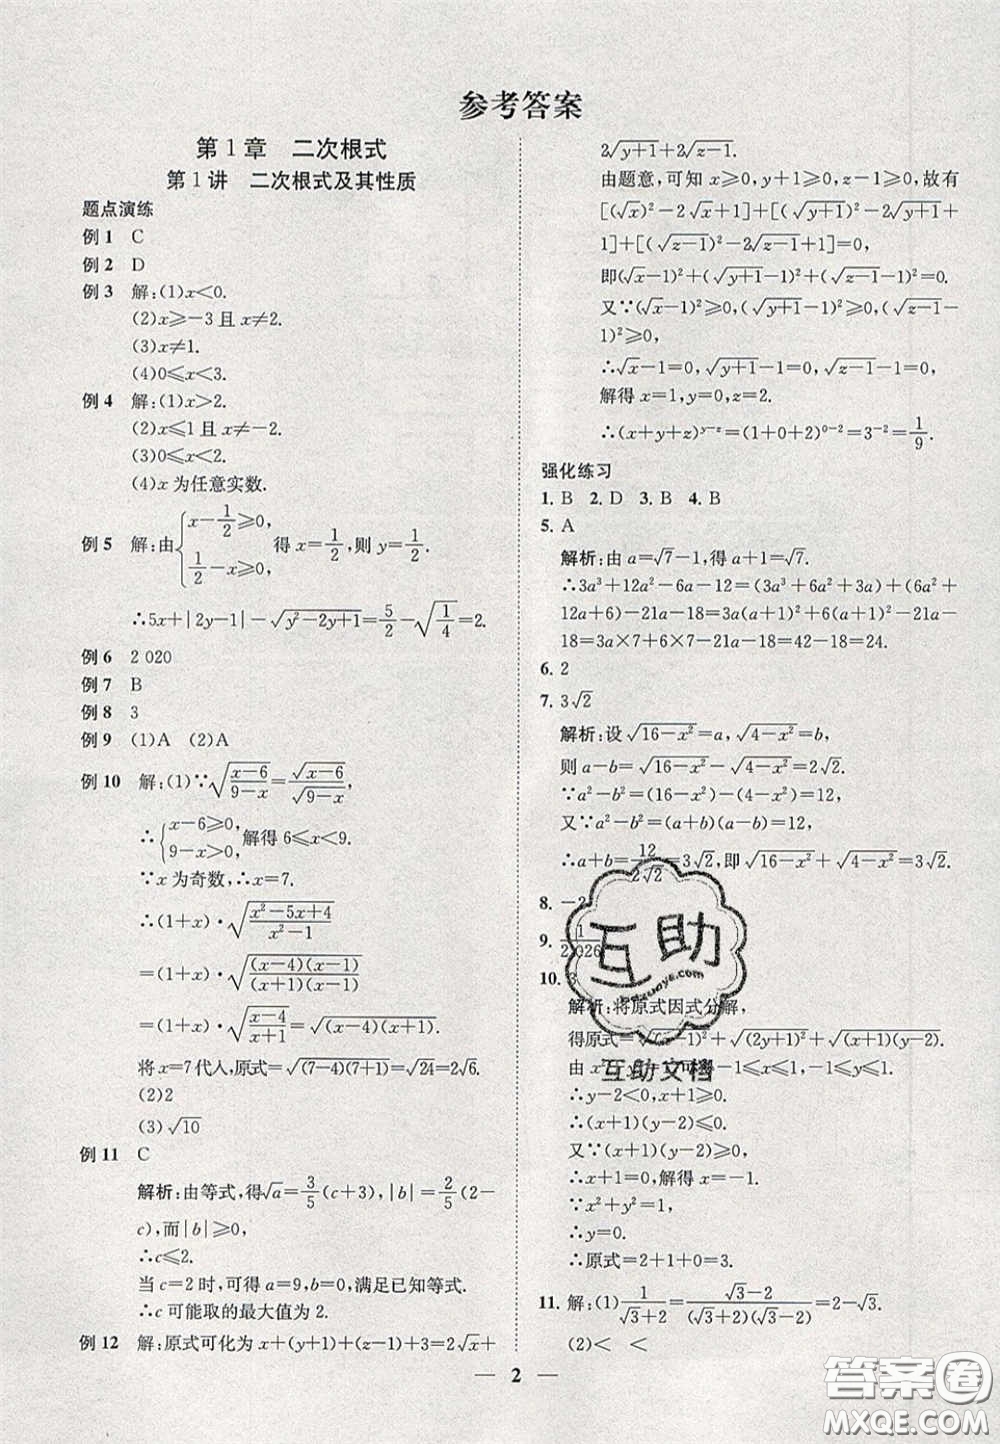 参考答案
第1章　二次根式
第1讲　二次根式及其性质
题点演练
例1　C
例2　D
例3　解:(1)x<0.
(2)x≥-3且x≠2.
(3)x≠1.
(4)0≤x<3.
例4　解:(1)x>2.
(2)x≤1且x≠-2.
(3)0≤x<2.
(4)x为任意实数.
例5　解:由{x-1/2≥0, 1/2-x≥0, 得x=1/2,则y=1/2.
∴5x+|2y-1|-√(y²-2y+1)=5/2-√(1/4)=2.
例6　2 020
例7　B
例8　3
例9　(1)A　(2)A
例10　解:(1)∵√((x-6)/(9-x))=√(x-6)/√(9-x),
∴{x-6≥0, 9-x>0, 解得6≤x<9.
∵x为奇数,∴x=7.
∴(1+x)·√((x²-5x+4)/(x²-1))
=(1+x)·√((x-4)(x-1)/((x+1)(x-1)))
=(1+x)·√((x-4)/(x+1))=√((x-4)(x+1)).
将x=7代人,原式=√((7-4)(7+1))=√24=2√6.
(2)2
(3)√10
例11　C
解析:由等式,得√a=3/5(c+3),|b|=2/5(2-
c),而|b|≥0,
∴c≤2.
当c=2时,可得a=9,b=0,满足已知等式.
∴c可能取的最大值为2.
例12　解:原式可化为x+(y+1)+(z-1)+3=2√x+
2√(y+1)+2√(z-1).
由题意,可知x≥0,y+1≥0,z-1≥0,故有
[(√x)²-2√x+1]+[(√(y+1))²-2√(y+1)+
1]+[(√(z-1))²-2√(z-1)+1]=0,
即(√x-1)²+(√(y+1)-1)²+(√(z-1)-1)²=0.
又∵(√x-1)²≥0,(√(y+1)-1)²≥0,(√(z-1)-
1)²≥0,
∴√x-1=0,√(y+1)-1=0,√(z-1)-1=0,
解得x=1,y=0,z=2.
∴(x+y+z)^(y-z)=(1+0+2)^(0-2)=3^(-2)=1/9.
强化练习
1. B　2. D　3. B　4. B
5. A
解析:由a=√7-1,得a+1=√7.
∴3a³+12a²-6a-12=(3a³+6a²+3a)+(6a²+
12a+6)-21a-18=3a(a+1)²+6(a+1)²-21a-
18=3a×7+6×7-21a-18=42-18=24.
6. 2
7. 3√2
解析:设√(16-x²)=a,√(4-x²)=b,
则a-b=√(16-x²)-√(4-x²)=2√2.
∵a²-b²=(16-x²)-(4-x²)=12,
又∵a²-b²=(a+b)(a-b)=12,
∴a+b=12/(2√2)=3√2,即√(16-x²)+√(4-x²)=3√2.
8. -2
9. 1/2 026
10. 3
解析:将原式因式分解,
得原式=√((x-2)²)+√((2y+1)²)+√((x+1)(y-2)).
由x²+y²=1,可知-1≤x≤1,-1≤y≤1.
∴y-2<0,x+1≥0.
∴(x+1)(y-2)≤0.
又∵(x+1)(y-2)≥0,
∴x+1=0,x=-1.
∵x²+y²=1,
∴y=0.
∴原式=2+1+0=3.
11. 解:(1)1/(√3+2)=(√3-2)/((√3+2)(√3-2))=2-√3.
(2)<　<
2
互助
互助文档
答案圈
MXQE.COM